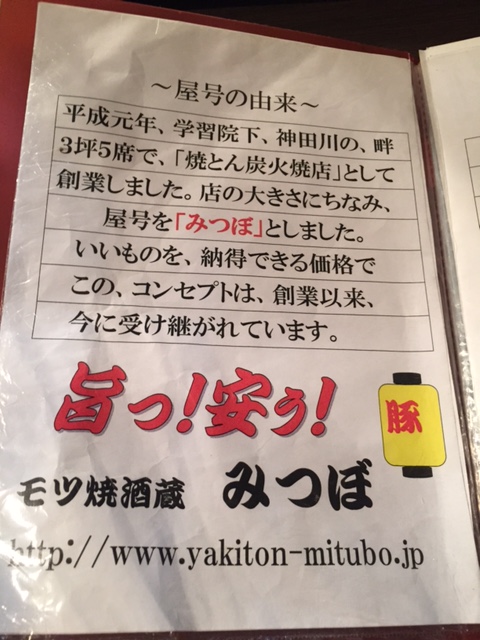 ～屋号の由来～
平成元年、学習院下、神田川の、畔
3坪5席で、「焼とん炭火焼店」として
創業しました。店の大きさにちなみ、
屋号を「みつぼ」としました。
いいものを、納得できる価格で
この、コンセプトは、創業以来、
今に受け継がれています。
旨っ!安ぅ!
豚
モツ焼酒蔵 みつぼ
http://www.yakiton-mitubo.jp